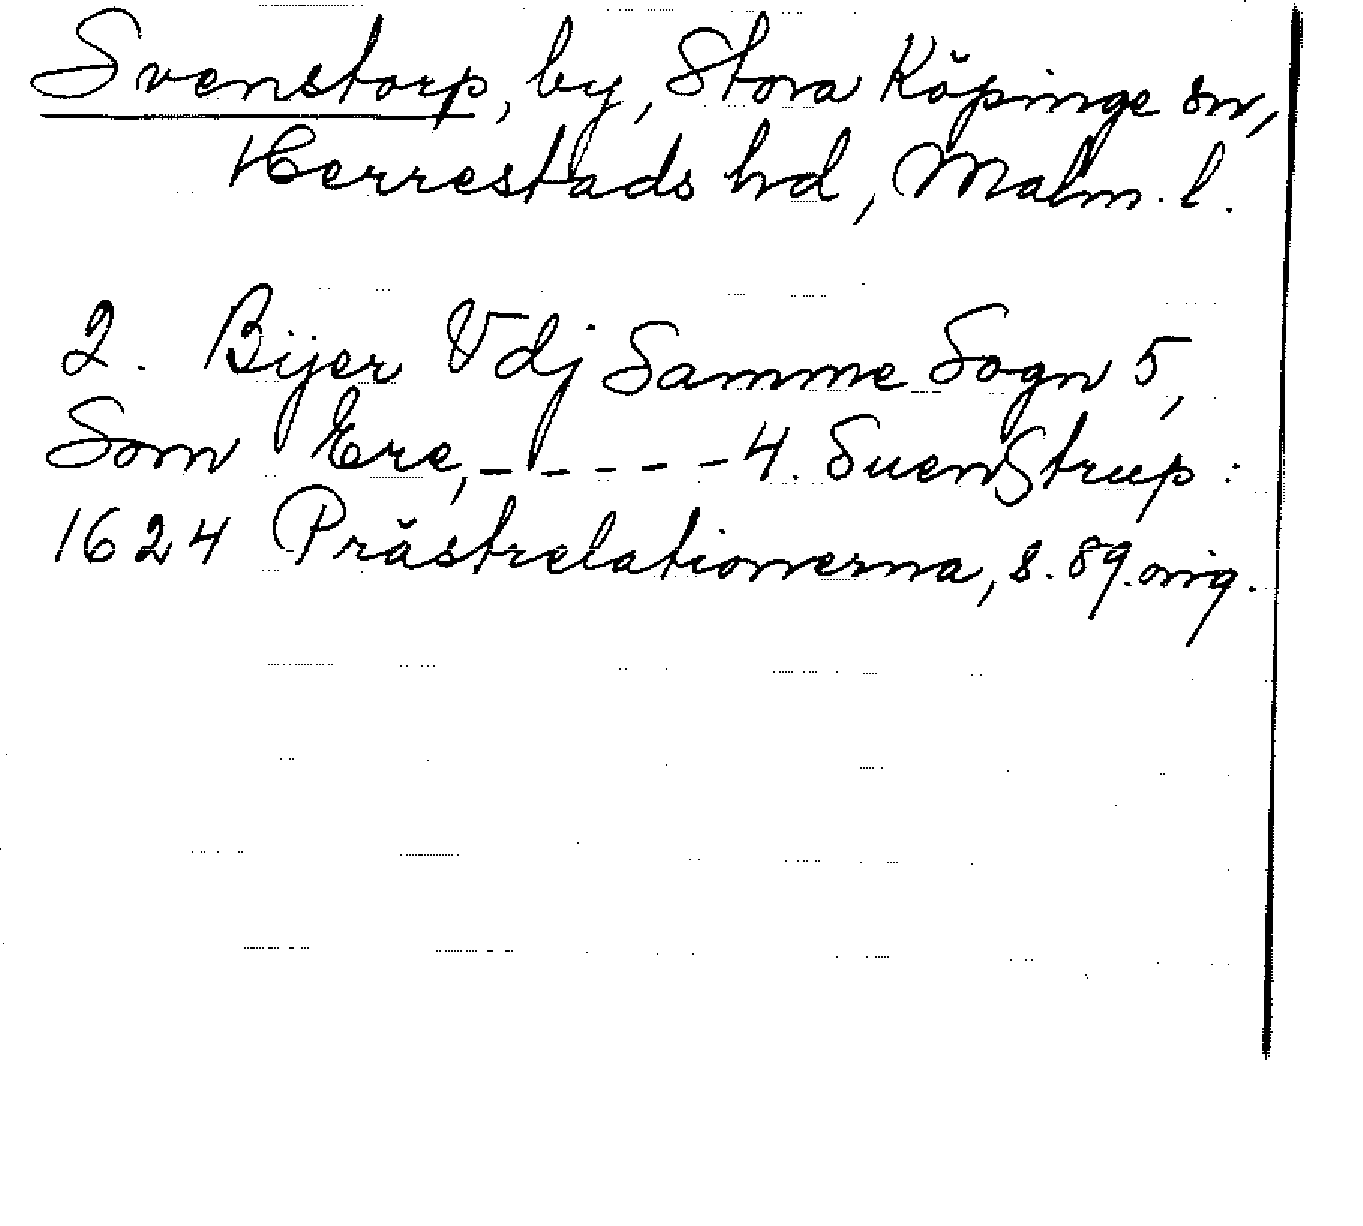 Svenstorp, by, Stora Köpinge sn,
Herrestads hd, Malm. l.
2. Bijer Vdj Samme Sogn 5,
Som Ere, - - - - - 4. SuenStrup:
1624 Prästrelationerna, s. 89. orig.